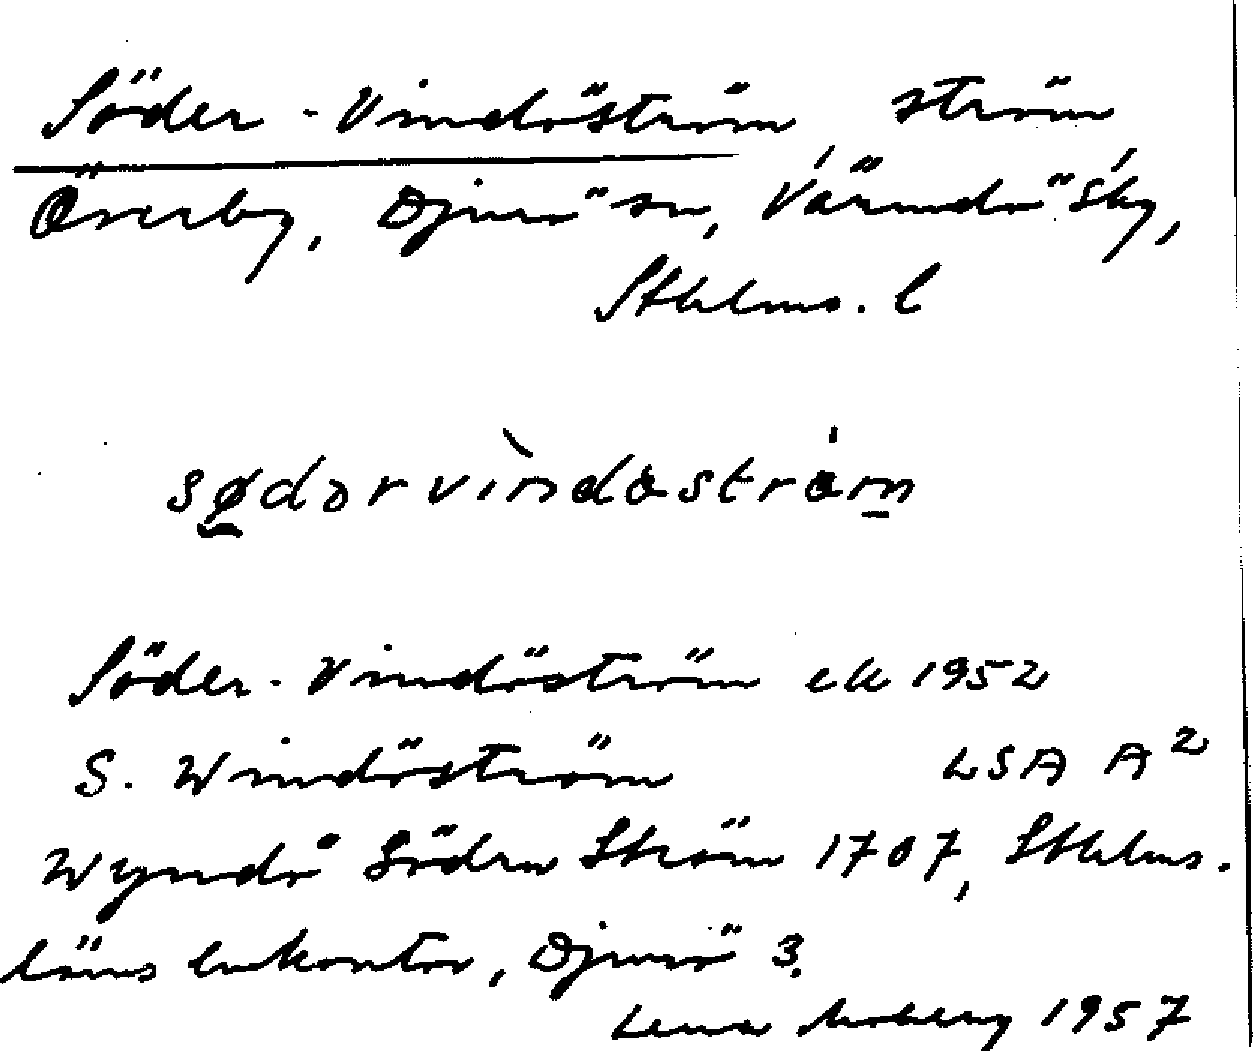 Söder-Vindöström ström
Överby, Djurö sn, Värmdö sky,
Sthlms. l
sødərvìndaström
Söder-Vindöström ek 1952
S. Windöström LSA A²
Wyndö Södra Ström 1707, Sthlms.
läns lmkontor, Djurö 3.
Lena Moberg 1957